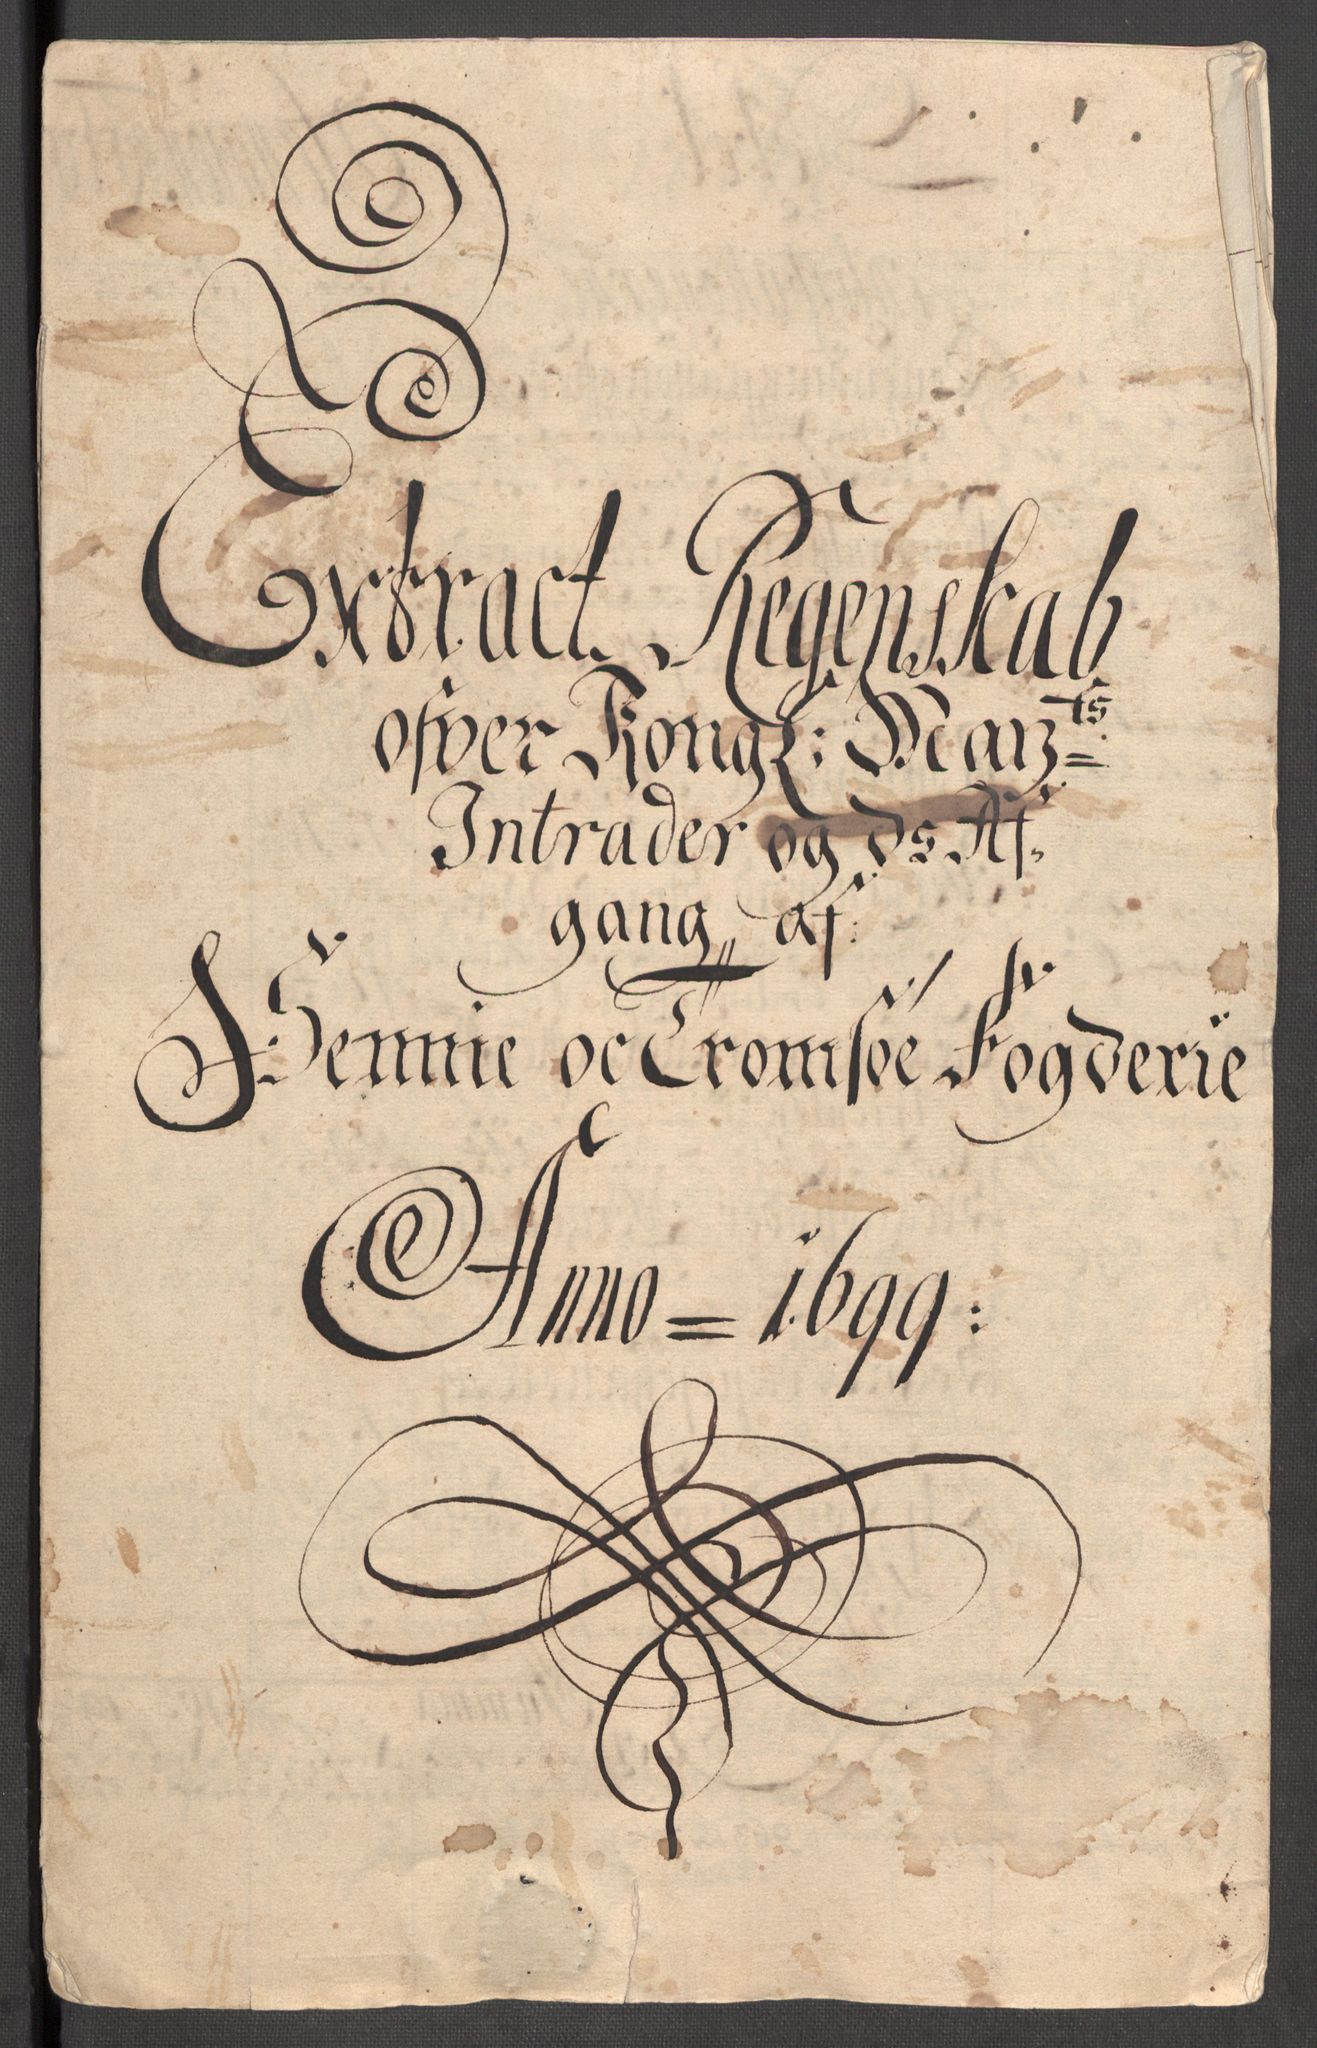 Extract Regenskab
ofver Kongl: Maÿ=ts
Intrader og ds Af,
gang af
Sennie oc Tromsøe Fogderie
Anno = 1699: